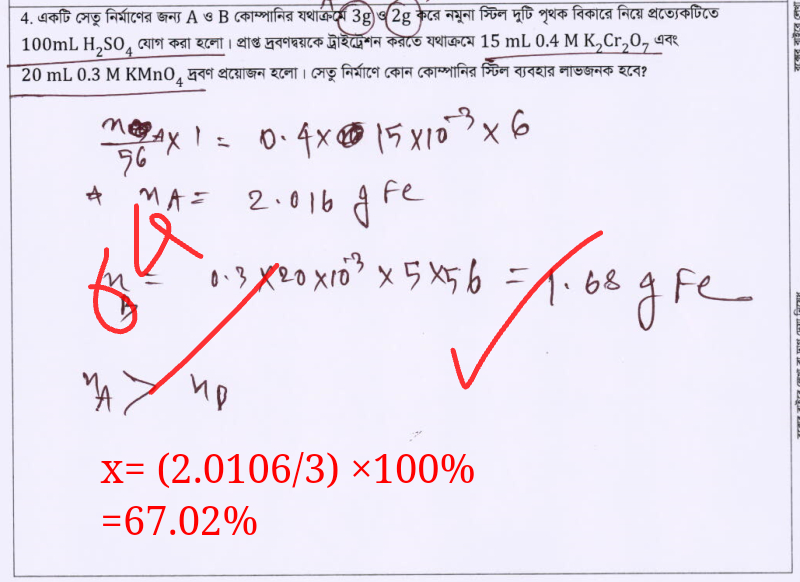 4. একটি সেতু নির্মাণের জন্য A ও B কোম্পানির যথাক্রমে 3g ও 2g করে নমুনা স্টিল দুটি পৃথক বিকারে নিয়ে প্রত্যেকটিতে
100mL H₂SO₄ যোগ করা হলো। প্রাপ্ত দ্রবণদ্বয়কে ট্রাইট্রেশন করতে যথাক্রমে 15 mL 0.4 M K₂Cr₂O₇ এবং
20 mL 0.3 M KMnO₄ দ্রবণ প্রয়োজন হলো। সেতু নির্মাণে কোন কোম্পানির স্টিল ব্যবহার লাভজনক হবে?
n_A/56 × 1 = 0.4 × 15 × 10⁻³ × 6
n_A = 2.016 g Fe
n_B = 0.3 × 20 × 10⁻³ × 5 × 56 = 1.68 g Fe
n_A > n_B
x= (2.0106/3) ×100%
=67.02%